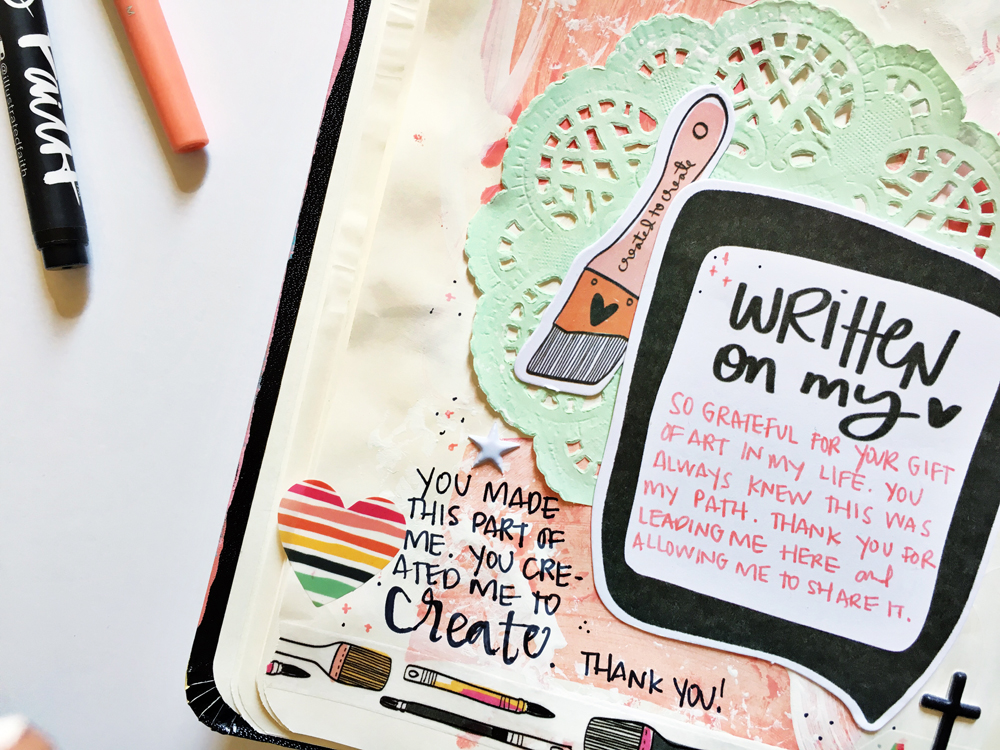 Faith
@illustratedfaith
created to create
WRitteN
on my
SO GRATEFUL FOR YOUR GIFT
OF ART IN MY LIFE. YOU
ALWAYS KNEW THIS WAS
MY PATH. THANK YOU FOR
LEADING ME HERE and
ALLOWING ME TO SHARE IT.
YOU MADE
THIS PART OF
ME. YOU CRE-
ATED ME TO
Create.
THANK YOU!